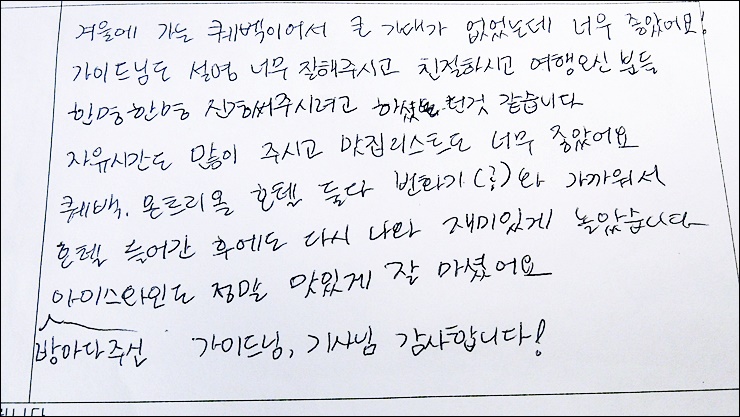 겨울에 가는 퀘벡이어서 큰 기대가 없었는데 너무 좋았어요!
가이드님도 설명 너무 잘해주시고 친절하시고 여행오신 분들
한명한명 신경써주시려고 하셨던것 같습니다
자유시간도 많이 주시고 맛집리스트도 너무 좋았어요
퀘백, 몬트리올 호텔 둘다 번화가(?)와 가까워서
호텔 들어간 후에도 다시 나와 재미있게 놀았습니다
아이스와인도 정말 맛있게 잘 마셨어요
방마다주신 가이드님, 기사님 감사합니다!
니다